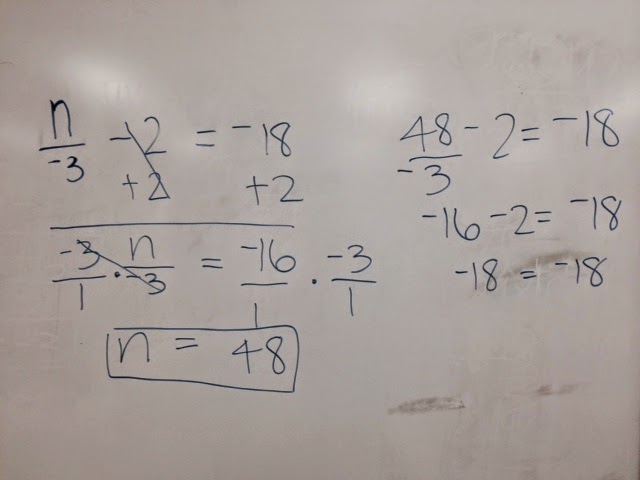 n/-3 -2 = -18
+2 +2
-3/1 · n/-3 = -16/1 · -3/1
n = 48
48/-3 - 2 = -18
-16 - 2 = -18
-18 = -18